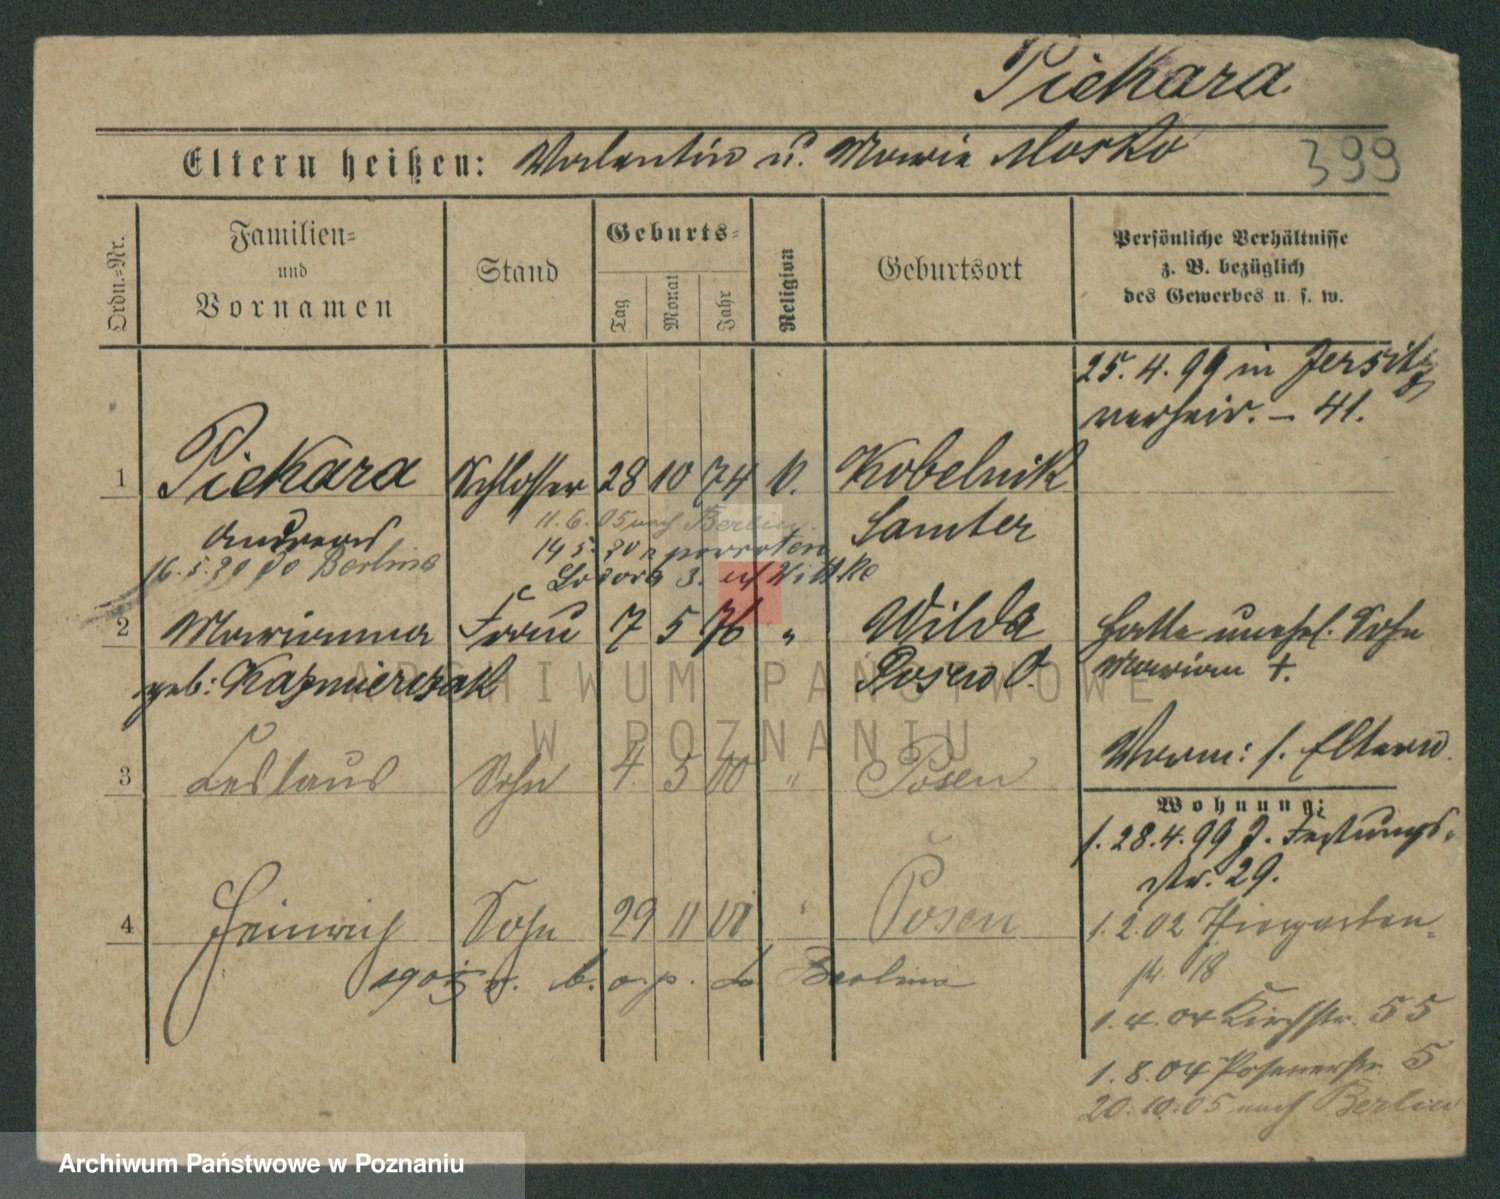 Piekara
Eltern heißen: Valentin u. Marie Mosko
399
Ordn.=Nr.
Familien=
und
Vornamen
Stand
Geburts=
Tag
Monat
Jahr
Religion
Geburtsort
Persönliche Verhältnisse
z. B. bezüglich
des Gewerbes u. s. w.
25. 4. 99 in Jersitz
verheir. – 41.
1 Piekara Schlosser 28 10 74 k. Kobelnik
Andreas Samter
11. 6. 05 nach Berlin.
16. 5. 20 do Berlina
2 Marianna Frau 7 5 76 " Wilda
geb: Kazmierczak Posen O.
Hatte unehl. Sohn
Marian +.
Vorm: s. Eltern.
3 Ceslaus Sohn 4. 5 00 " Posen
Wohnung:
1. 28. 4. 99 J. Festungs-
str. 29.
4 Heinrich Sohn 29 11 01 " Posen
1. 2. 02 Tiergarten-
str. 18
1905 r. do Berlina
1. 4. 04 Kirchstr. 55
1. 8. 04 Posenerstr. 5
20. 10. 05 nach Berlin
ARCHIWUM PAŃSTWOWE
W POZNANIU
Archiwum Państwowe w Poznaniu